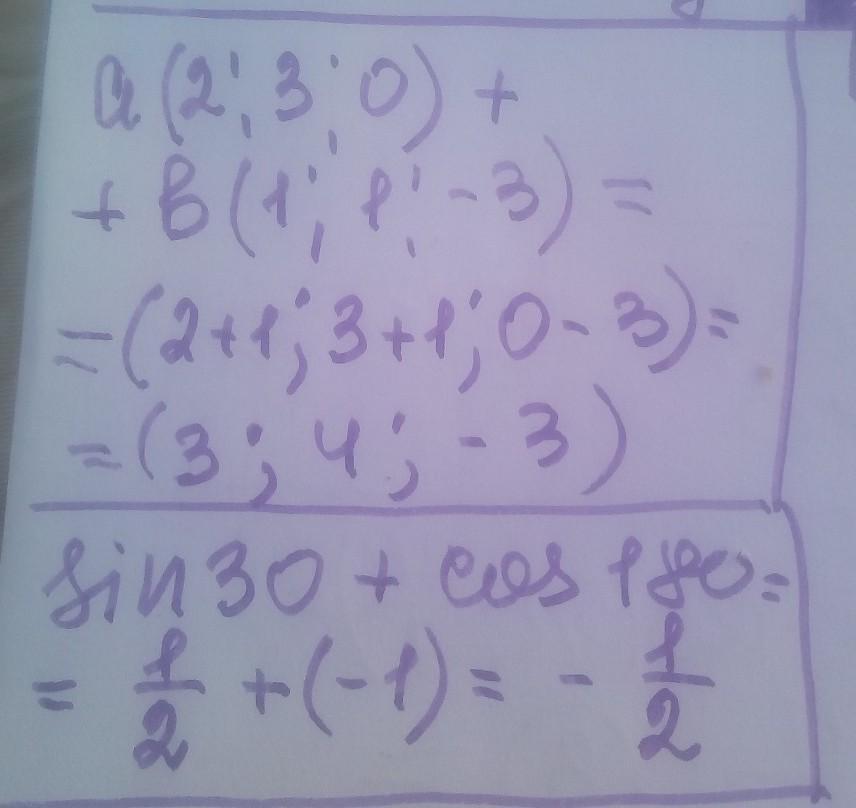 a(2; 3; 0) +
+ b(1; 1; -3) =
=(2+1; 3+1; 0-3)=
=(3; 4; -3)
sin 30 + cos 180 =
= 1/2 + (-1) = - 1/2